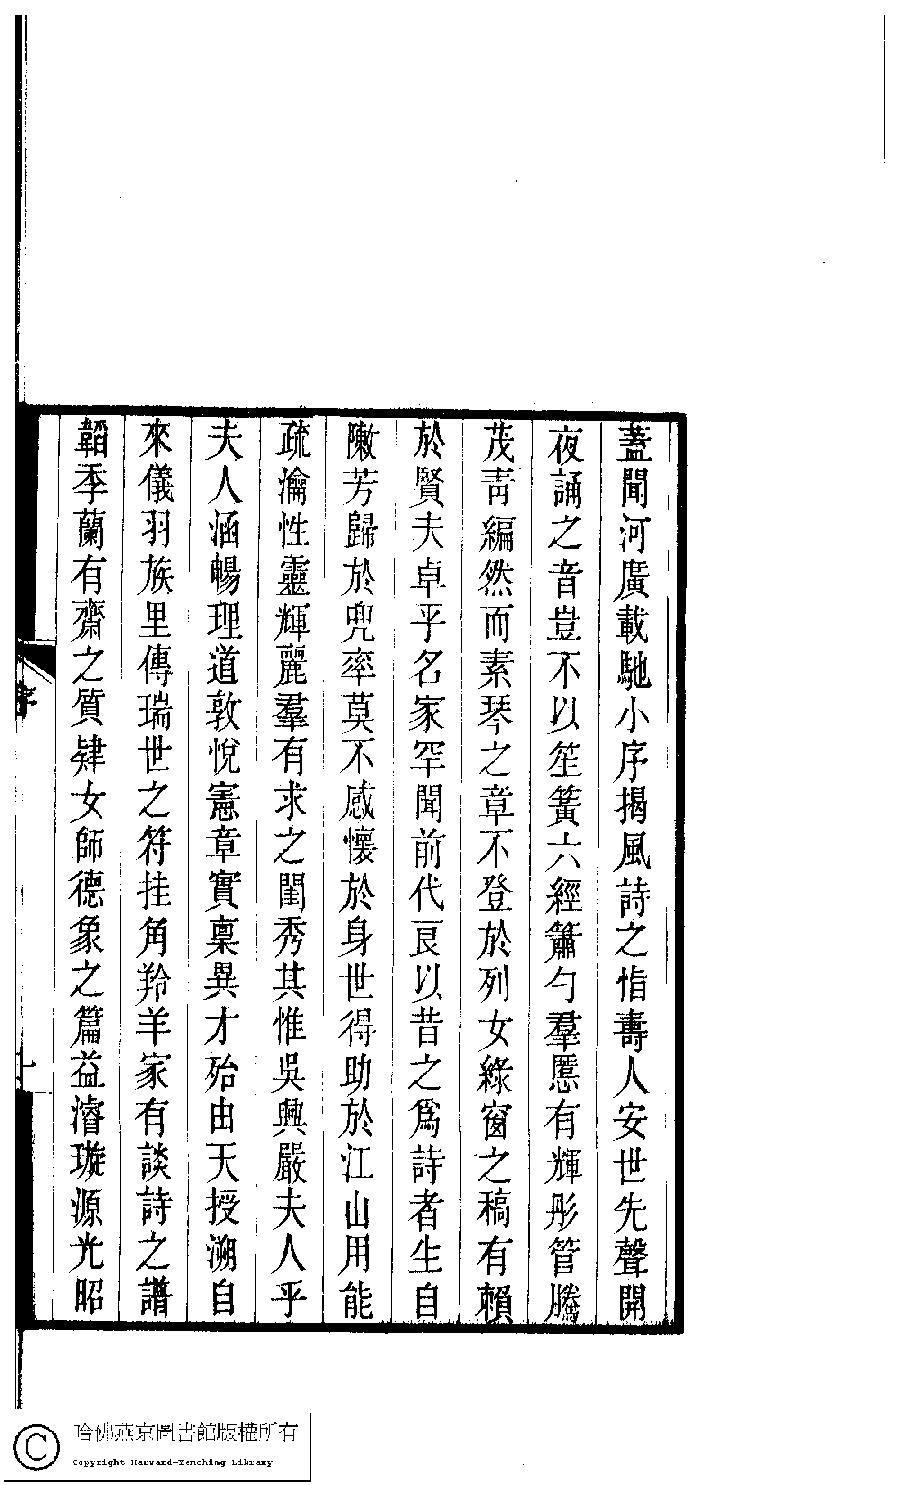 蓋聞河廣載馳小序揭風詩之恉壽人安世先聲開
夜誦之音豈不以笙簧六經簫勺羣慝有輝彤管騰
茂靑編然而素琴之章不登於列女綠窗之稿有賴
於賢夫卓乎名家罕聞前代良以昔之爲詩者生自
陳芳歸於兜率莫不感懷於身世得助於江山用能
疏瀹性靈輝麗羣有求之閨秀其惟吳興嚴夫人乎
夫人涵暢理道敦悅憲章實稟異才殆由天授溯自
來儀羽族里傳瑞世之符挂角羚羊家有談詩之譜
韜季蘭有齋之質肄女師德象之篇益濬璇源光昭
序
一
哈佛燕京圖書館版權所有
Copyright Harvard-Yenching Library